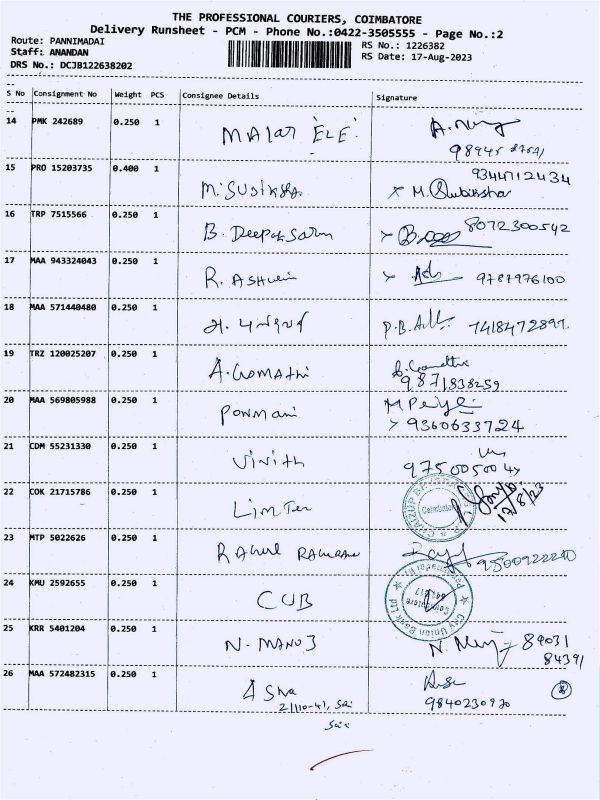 THE PROFESSIONAL COURIERS, COIMBATORE
Delivery Runsheet - PCM - Phone No.:0422-3505555 - Page No.:2
Route: PANNIMADAI
Staff: ANANDAN
DRS No.: DCJB122638202
RS No.: 1226382
RS Date: 17-Aug-2023
S No Consignment No Weight PCS Consignee Details Signature
14 PMK 242689 0.250 1 MALAR ELE
15 PRO 15203735 0.400 1 M. SUDIKSHA 9344712434
16 TRP 7515566 0.250 1 B. Deepak 8072300542
17 MAA 943324043 0.250 1 R. ASHWIN 9787976100
18 MAA 571440480 0.250 1 P.B. 7418472897
19 TRZ 120025207 0.250 1 A. GOMATHI 9871838259
20 MAA 569805988 0.250 1 PONMANI 9360633724
21 CDM 55231330 0.250 1 VINITH 9750050047
22 COK 21715786 0.250 1 LIMTEX Coimbatore 17/8/23
23 MTP 5022626 0.250 1 RAHUL 9500922240
24 KMU 2592655 0.250 1 CUB City Union Bank Ltd Coimbatore
25 KRR 5401204 0.250 1 N. MANOJ 89031
84391
26 MAA 572482315 0.250 1 ASHA
2/110-41, Sai 9840230970
Sai